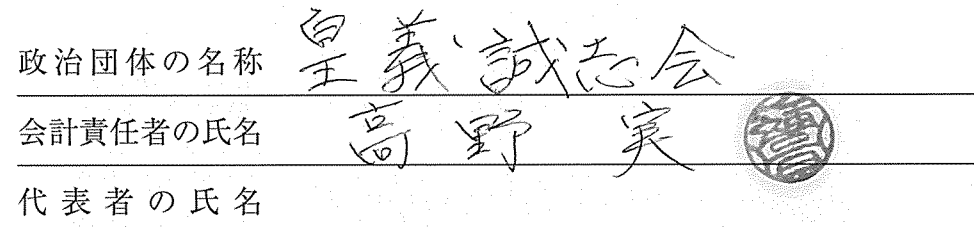 政治団体の名称 皇義誠志会
会計責任者の氏名 高野実
代表者の氏名